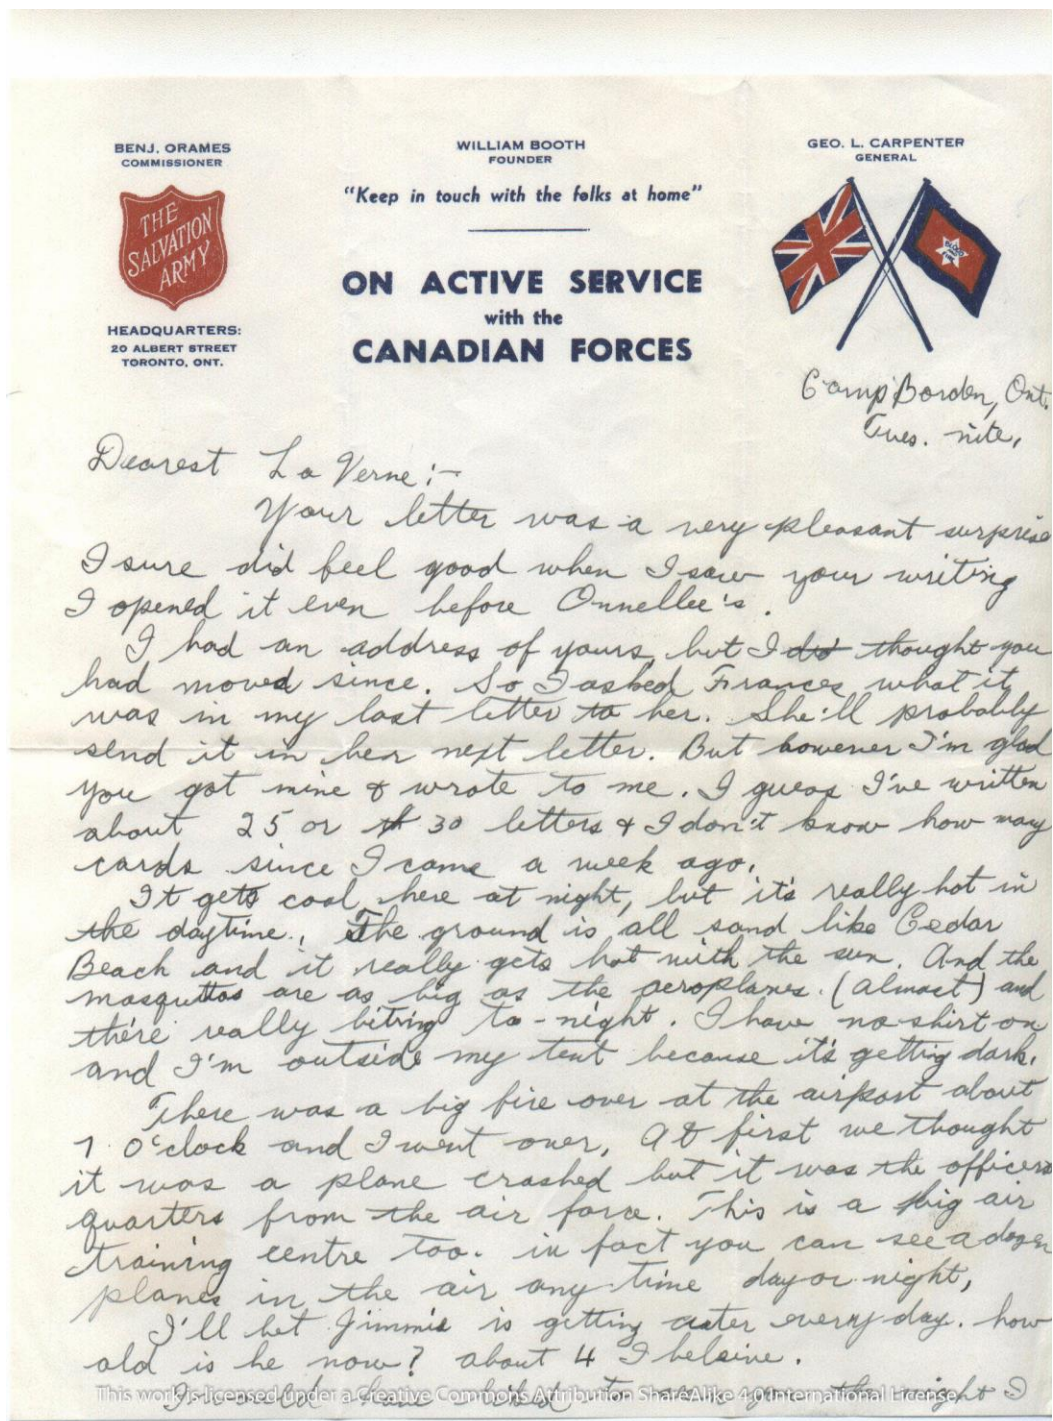 BENJ. ORAMES
COMMISSIONER
THE
SALVATION
ARMY
HEADQUARTERS:
20 ALBERT STREET
TORONTO, ONT.
WILLIAM BOOTH
FOUNDER
"Keep in touch with the folks at home"
ON ACTIVE SERVICE
with the
CANADIAN FORCES
GEO. L. CARPENTER
GENERAL
Camp Borden, Ont.
Tues. nite,
Dearest La Verne:-
Your letter was a very pleasant surprise
I sure did feel good when I saw your writing
I opened it even before Onnellee's.
I had an address of yours, but I did thought you
had moved since. So I asked Frances what it
was in my last letter to her. She'll probably
send it in her next letter. But however I'm glad
you got mine & wrote to me. I guess I've written
about 25 or 30 letters & I don't know how many
cards since I came a week ago.
It gets cool here at night, but it's really hot in
the daytime. The ground is all sand like Cedar
Beach and it really gets hot with the sun. And the
mosquittos are as big as the aeroplanes. (almost) and
there really biting to-night. I have no shirt on
and I'm outside my tent because it's getting dark.
There was a big fire over at the airport about
7 O'clock and I went over. At first we thought
it was a plane crashed but it was the officers
quarters from the air force. This is a big air
training centre too. in fact you can see a dozen
planes in the air any time day or night,
I'll bet Jimmie is getting cuter every day. how
old is he now? about 4 I beleive.
I would have liked to see you the night I
This work is licensed under a Creative Commons Attribution ShareAlike 4.0 International License